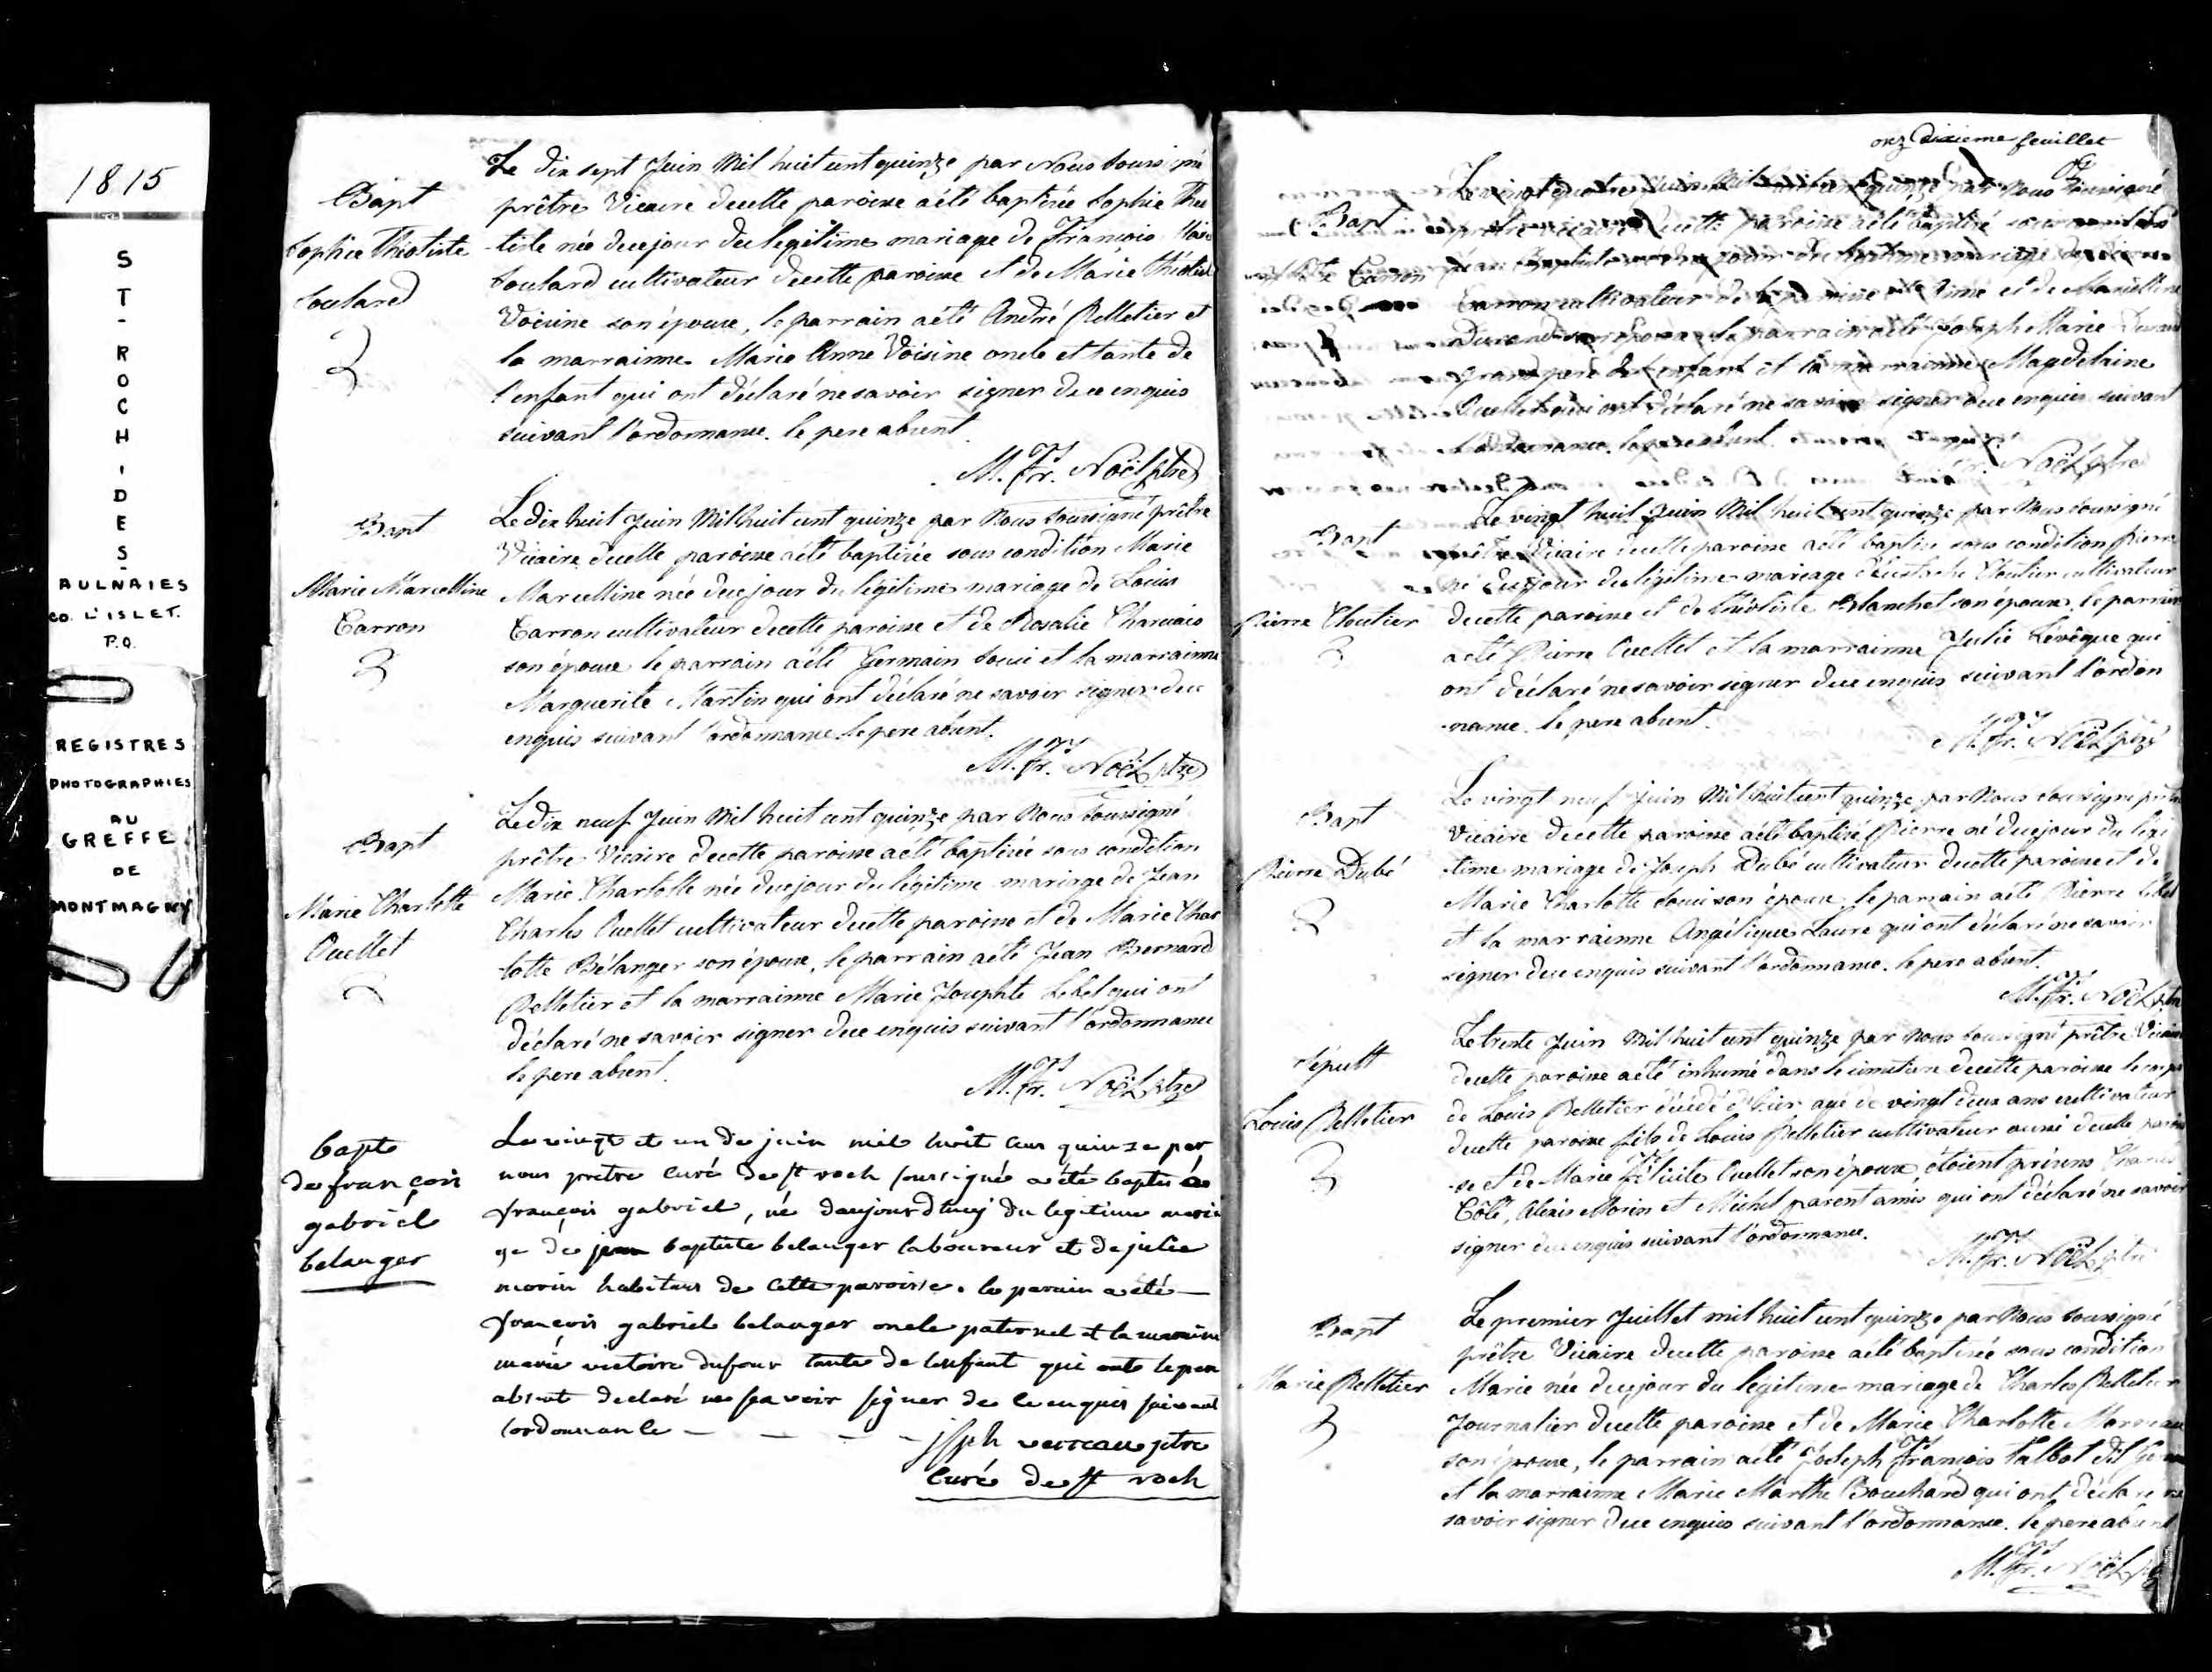 1815
ST-ROCH-DES-
AULNAIES
CO. L'ISLET.
P.Q.
REGISTRES
PHOTOGRAPHIES
AU
GREFFE
DE
MONTMAGNY
Bapt
Sophie Theotiste
Soulard
Le dix sept Juin Mil huit cent quinze par Nous soussigné
prêtre Vicaire de cette paroisse a été baptisée Sophie Théo
-tiste née de ce jour du legitime mariage de François
Soulard cultivateur de cette paroisse et de Marie Théotiste
Voisine son épouse, le parrain a été André Pelletier et
la marrainne Marie Anne Voisine oncle et tante de
l'enfant qui ont déclaré ne savoir signer de ce enquis
suivant l'ordonnance. le pere absent
M. Fr. Noël ptre
Bapt
Marie Marcelline
Carron
Le dix huit Juin Mil huit cent quinze par Nous soussigné prêtre
Vicaire de cette paroisse a été baptisée sous condition Marie
Marcelline née de ce jour du légitime mariage de Louis
Carron cultivateur de cette paroisse et de Rosalie Charuais
son épouse le parrain a été Germain Souci et la marrainne
Marguerite Martin qui ont déclaré ne savoir signer de ce
enquis suivant l'ordonnance le pere absent.
M. Fr. Noël ptre
Bapt
Marie Charlotte
Ouellet
Le dix neuf Juin Mil huit cent quinze par Nous soussigné
prêtre Vicaire de cette paroisse a été baptisée sous condition
Marie Charlotte née de ce jour du légitime mariage de Jean
Charles Ouellet cultivateur de cette paroisse et de Marie Char
-lotte Bélanger son épouse, le parrain a été Jean Bernard
Pelletier et la marrainne Marie Josephte Lebel qui ont
déclaré ne savoir signer de ce enquis suivant l'ordonnance
le pere absent.
M. Fr. Noël ptre
bapte
de françois
gabriel
belanger
Le vingt et un de juin mil huit cens quinze par
nous pretre curé de st roch soussigné a été baptisé
françois gabriel, né daujourdhuy du legitime maria
ge de jean baptiste belanger laboureur et de julie
morin habitans de cette paroisse. le parain a été —
françois gabriel belanger oncle paternel et la maraine
marie victoire dufour tante de lenfant qui ont le pere
absent declaré ne sçavoir signer de ce enquis suivant
lordonnance — — — —
jsph verreau ptre
curé de st roch
dixieme feuillet
Bapt
Carron
Le vingt quatre Juin Mil huit cent quinze par Nous soussigné
prêtre Vicaire de cette paroisse a été baptisé sous condition
Carron cultivateur de
Durand son épouse, le parrain a été Joseph Marie Durand
grand pere de l'enfant et la marrainne Magdelaine
Ouellet qui ont déclaré ne savoir signer de ce enquis suivant
l'ordonnance. le pere absent.
Noël ptre
Bapt
Pierre Cloutier
Le vingt huit Juin Mil huit cent quinze par Nous soussigné
prêtre Vicaire de cette paroisse a été baptisé sous condition Pierre
né de ce jour du légitime mariage d'Eustache Cloutier cultivateur
de cette paroisse et de Théotiste Blanchet son épouse. le parrain
a été Pierre Ouellet et la marrainne Julie Lévêque qui
ont déclaré ne savoir signer de ce enquis suivant l'ordon
-nance. le pere absent.
M. Fr. Noël ptre
Bapt
Pierre Dubé
Le vingt neuf Juin Mil huit cent quinze par Nous soussigné prêtre
Vicaire de cette paroisse a été baptisé Pierre né de ce jour du legi
-time mariage de Joseph Dubé cultivateur de cette paroisse et de
Marie Charlotte Souci son épouse, le parrain a été Pierre Lebel
et la marrainne Angélique Laure qui ont déclaré ne savoir
signer de ce enquis suivant l'ordonnance. le pere absent.
M. Fr. Noël ptre
Sépult
Louis Pelletier
Le trente Juin Mil huit cent quinze par Nous soussigné prêtre Vicaire
de cette paroisse a été inhumé dans le cimetiere de cette paroisse le corps
de Louis Pelletier décédé d'hier agé de vingt deux ans cultivateur
de cette paroisse fils de Louis Pelletier cultivateur aussi de cette parois
-se et de Marie Félicité Ouellet son épouse, étoient présens Charles
Côté, Alexis Morin et Michel parent amis qui ont déclaré ne savoir
signer de ce enquis suivant l'ordonnance.
M. Fr. Noël ptre
Bapt
Marie Pelletier
Le premier Juillet mil huit cent quinze par Nous soussigné
prêtre Vicaire de cette paroisse a été baptisée sous condition
Marie née de ce jour du légitime mariage de Charles Pelletier
Journalier de cette paroisse et de Marie Charlotte Morneau
son épouse, le parrain a été Joseph François Talbot dit
et la marrainne Marie Marthe Bouchard qui ont déclaré ne
savoir signer de ce enquis suivant l'ordonnance. le pere absent
M. Fr. Noël ptre